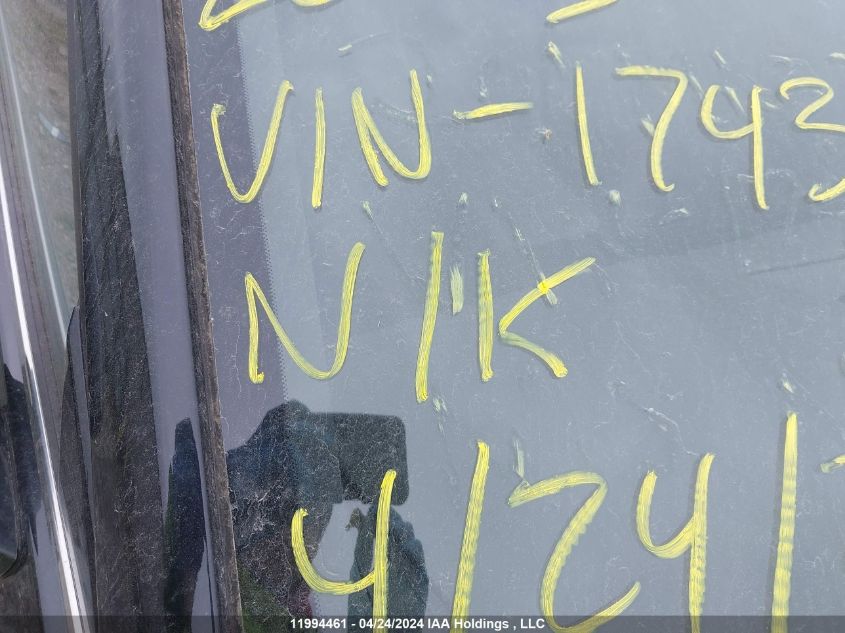 VIN-1743
N/K
4/24/
11994461 - 04/24/2024 IAA Holdings , LLC